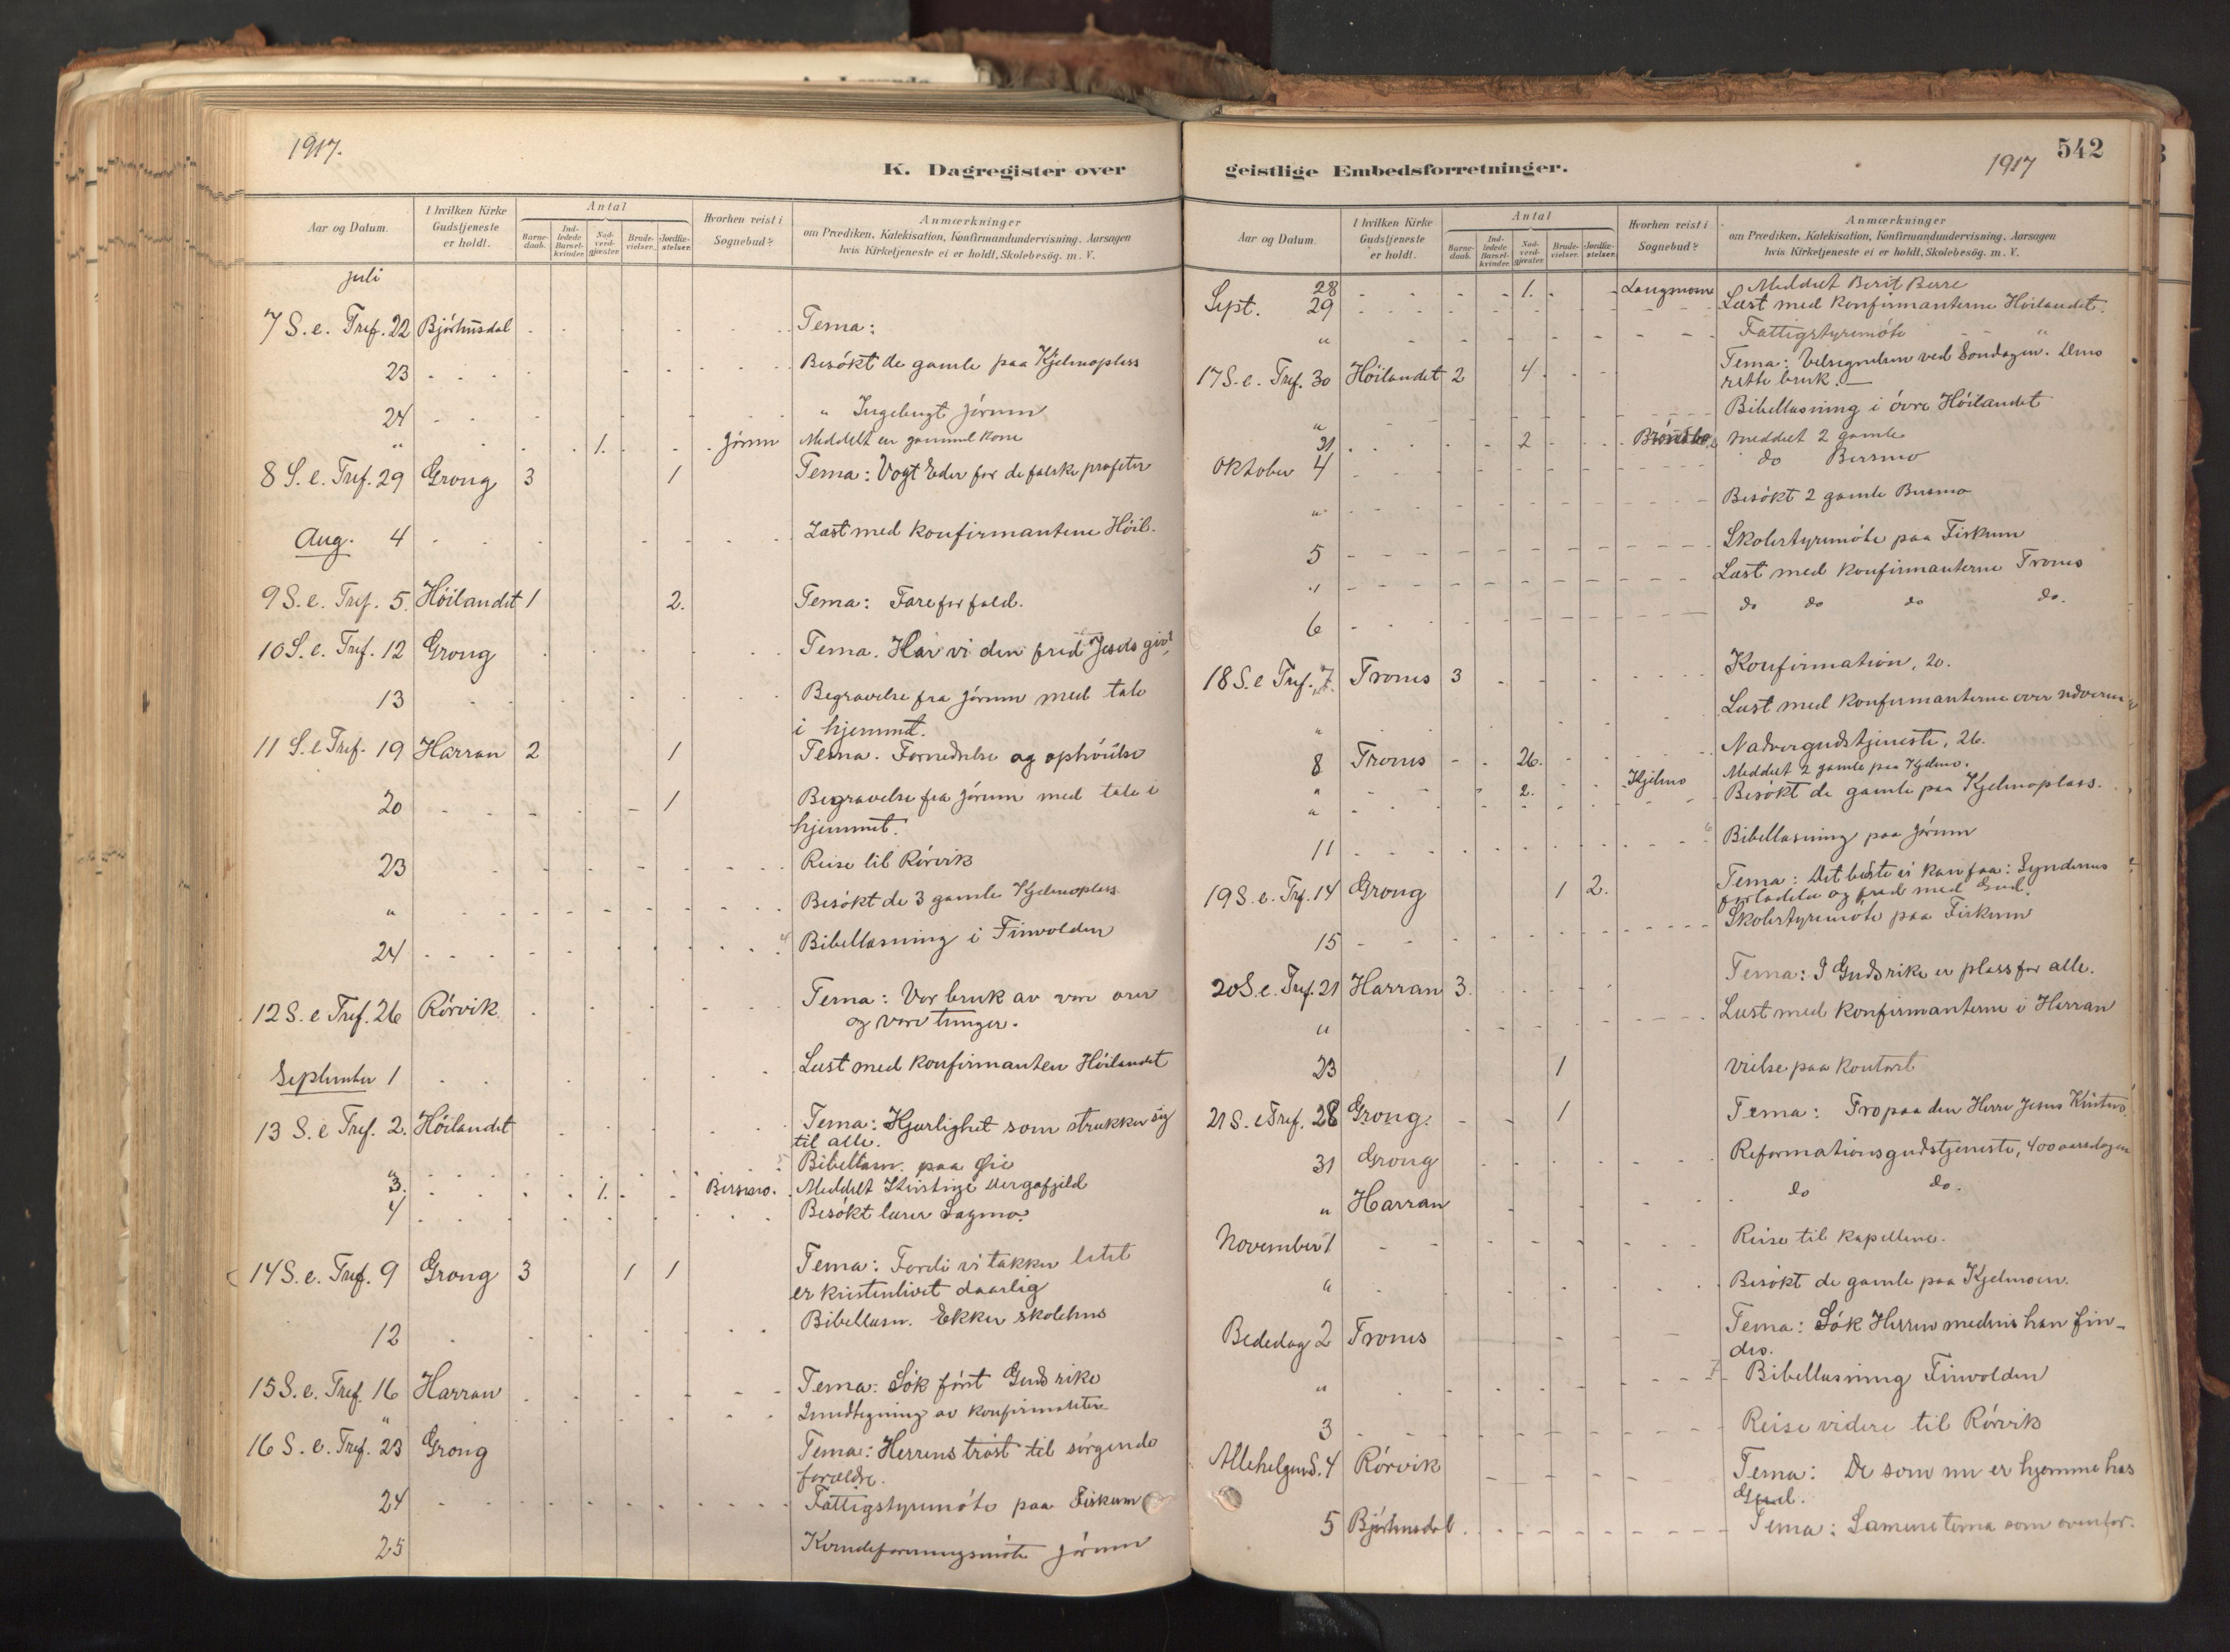 1917.
K. Dagregister over
Aar og Datum.
I hvilken Kirke Gudstjeneste er holdt.
Antal
Barne-daab.
Ind-ledede Barsel-kvinder.
Nad-verd-gjester.
Brude-vielser.
Jordfæ-stelser.
Hvorhen reist i Sognebud?
Anmærkninger
om Prædiken, Katekisation, Konfirmandundervisning, Aarsagen
hvis Kirketjeneste ei er holdt, Skolebesøg. m. V.
juli
7 S. e. Tref. 22 Bjørhusdal Tema:
23 Besøkt de gamle paa Kjelmoplass
24 " Ingebrigt Jørum
" 1. Jørum Meddelt en gammel kone
8 S. e. Tref. 29 Grong 3 1 Tema: Vogt Eder for de falske profeter
Aug. 4 Læst med konfirmantene Høil.
9 S. e. Tref. 5. Høilandet 1 2. Tema: Fare for fald.
10 S. e. Tref. 12 Grong Tema. Har vi den fred Jesus giv?
13 Begravelse fra Jørum med tale
i hjemmet.
11 S. e Tref. 19 Harran 2 1 Tema. Fornedrelse og ophøielse
20 1 Begravelse fra Jørum med tale i
hjemmet.
23 Reise til Rørvik
" Besøkt de 3 gamle Kjelmoplass
24 Bibellæsning i Finvolden
12 S. e Tref. 26 Rørvik Tema: Vor bruk av vore ører
og vore tunger.
September 1 Læst med konfirmanten Høilandet
13 S. e Tref. 2. Høilandet Tema: Kjærlighet som strækker sig
til alle.
Bibellæsn. paa Øie
3. 1. Bersmo. Meddelt Kirstine Dergafjeld
4 Besøkt lærer Sagmo.
14 S. e. Tref. 9 Grong 3 1 1 Tema: Fordi vi takker litet
er kristenlivet daarlig
12 Bibellæsn. Ekker skolehus
15 S. e. Tref. 16 Harran Tema: Søk først Guds rike
" Inndtegning av konfirmanter
16 S. e. Tref. 23 Grong Tema: Herrens trøst til sørgende
forældre.
24 Fattigstyremøte paa Fiskum
25 Kvindeforeningsmøte Jørum
542
1917
geistlige Embedsforretninger.
Aar og Datum.
I hvilken Kirke Gudstjeneste er holdt.
Antal
Barne-daab.
Ind-ledede Barsel-kvinder.
Nad-verd-gjester.
Brude-vielser.
Jordfæ-stelser.
Hvorhen reist i Sognebud?
Anmærkninger
om Prædiken, Katekisation, Konfirmandundervisning, Aarsagen
hvis Kirketjeneste ei er holdt, Skolebesøg. m. V.
28 1. Langmoen Meddelt Berit Berre
Sept. 29 Læst med konfirmanterne Høilandet.
" Fattigstyremøte "
17 S. e. Tref. 30 Høilandet 2 4 Tema: Velsignelsen ved Søndagen. Dens
rette bruk.
" Bibellæsning i øvre Høilandet
31 2 meddelt 2 gamle
Oktober 4 do Bersmo
" Besøkt 2 gamle Bersmo
5 Skolestyremøte paa Fiskum
" Læst med konfirmanterne Trones
6 do do do do.
18 S. e Tref. 7. Trones 3 Konfirmation, 20.
" Læst med konfirmanterne over nadveren
8 Trones 26. Nadvergudstjeneste, 26.
" 2. Kjelmo Meddelt 2 gamle paa Kjelmo.
" Besøkt de gamle paa Kjelmoplass.
11 Bibellæsning paa Jørum
19 S. e. Tref. 14 Grong 1 2. Tema: Det beste vi kan faa: Syndernes
forladelse og fred med Gud.
15 Skolestyremøte paa Fiskum
20 S. e. Tref. 21 Harran 3. Tema: I Guds rike er plass for alle.
" Læst med konfirmanterne i Harran
23 1 Vielse paa kontoret
21 S. e Tref. 28 Grong. 1 Tema: Tro paa den Herre Jesus Kristus.
31 Grong Reformationsgudstjeneste, 400 aarsdagen
" Harran do do.
November 1 Reise til kapellene.
" Besøkt de gamle paa Kjelmoen.
Bededag 2 Trones Tema: Søk Herren medens han fin-
des.
" Bibellæsning Finvolden
3 Reise videre til Rørvik
Allehelgensd. 4 Rørvik Tema: De som nu er hjemme hos
Gud.
5 Bjørhusdal Tema: Samme tema som ovenfor.